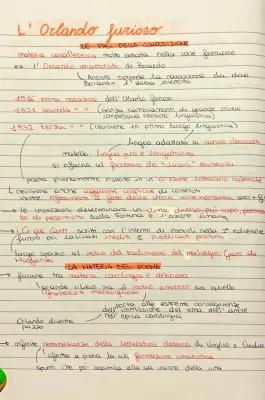 L' Orlando furioso
LE FASI DELLA COMPOSIZIONE
materia cavalleresca molto amata nella corte ferrarese
es. l' Orlando innamorato di Boiardo
Ariosto riprende la narrazione da dove
Boiardo l' aveva interrotta
1516 prima redazione dell' Orlando furioso
1521 seconda " " (senza cambiamenti di grande rilievo
complessiva revisione linguistica)
1532 terza " " (revisione in primo luogo linguistica)
lingua adattata ai canoni classicisti
modello: lingua pura e
si rifaceva al fiorentino dei "classici" trecenteschi
poeta pienamente inserito in un orizzonte letterario nazionale
revisione anche aggiunte cospicue di contenuti
inoltre riferimenti a fatti della storia contemporanea
le inserzioni determinano un clima diverso, più cupo,
di pessimismo sulla fortuna e l'agire umano
I Cinque Canti scritti con l'intento di inserirli nella 3ª edizione
furono poi lasciati inediti e pubblicati postumi
largo spazio al motivo del tradimento del malvagio Gano di
Maganza
LA MATERIA DEL POEMA
fusione tra materia carolingia e arturiana
grande rilievo sia al motivo amoroso sia quello
fiabesco e meraviglioso
porta alle estreme conseguenze
dell'immissione del tema dell' amore
nell'epica carolingia
Orlando diventa
pazzo
infinite reminiscenze della letteratura classica di Virgilio e Ovidio
riflette a pieno la sua formazione umanistica
spunti che poi assimila alla sua visione della vita